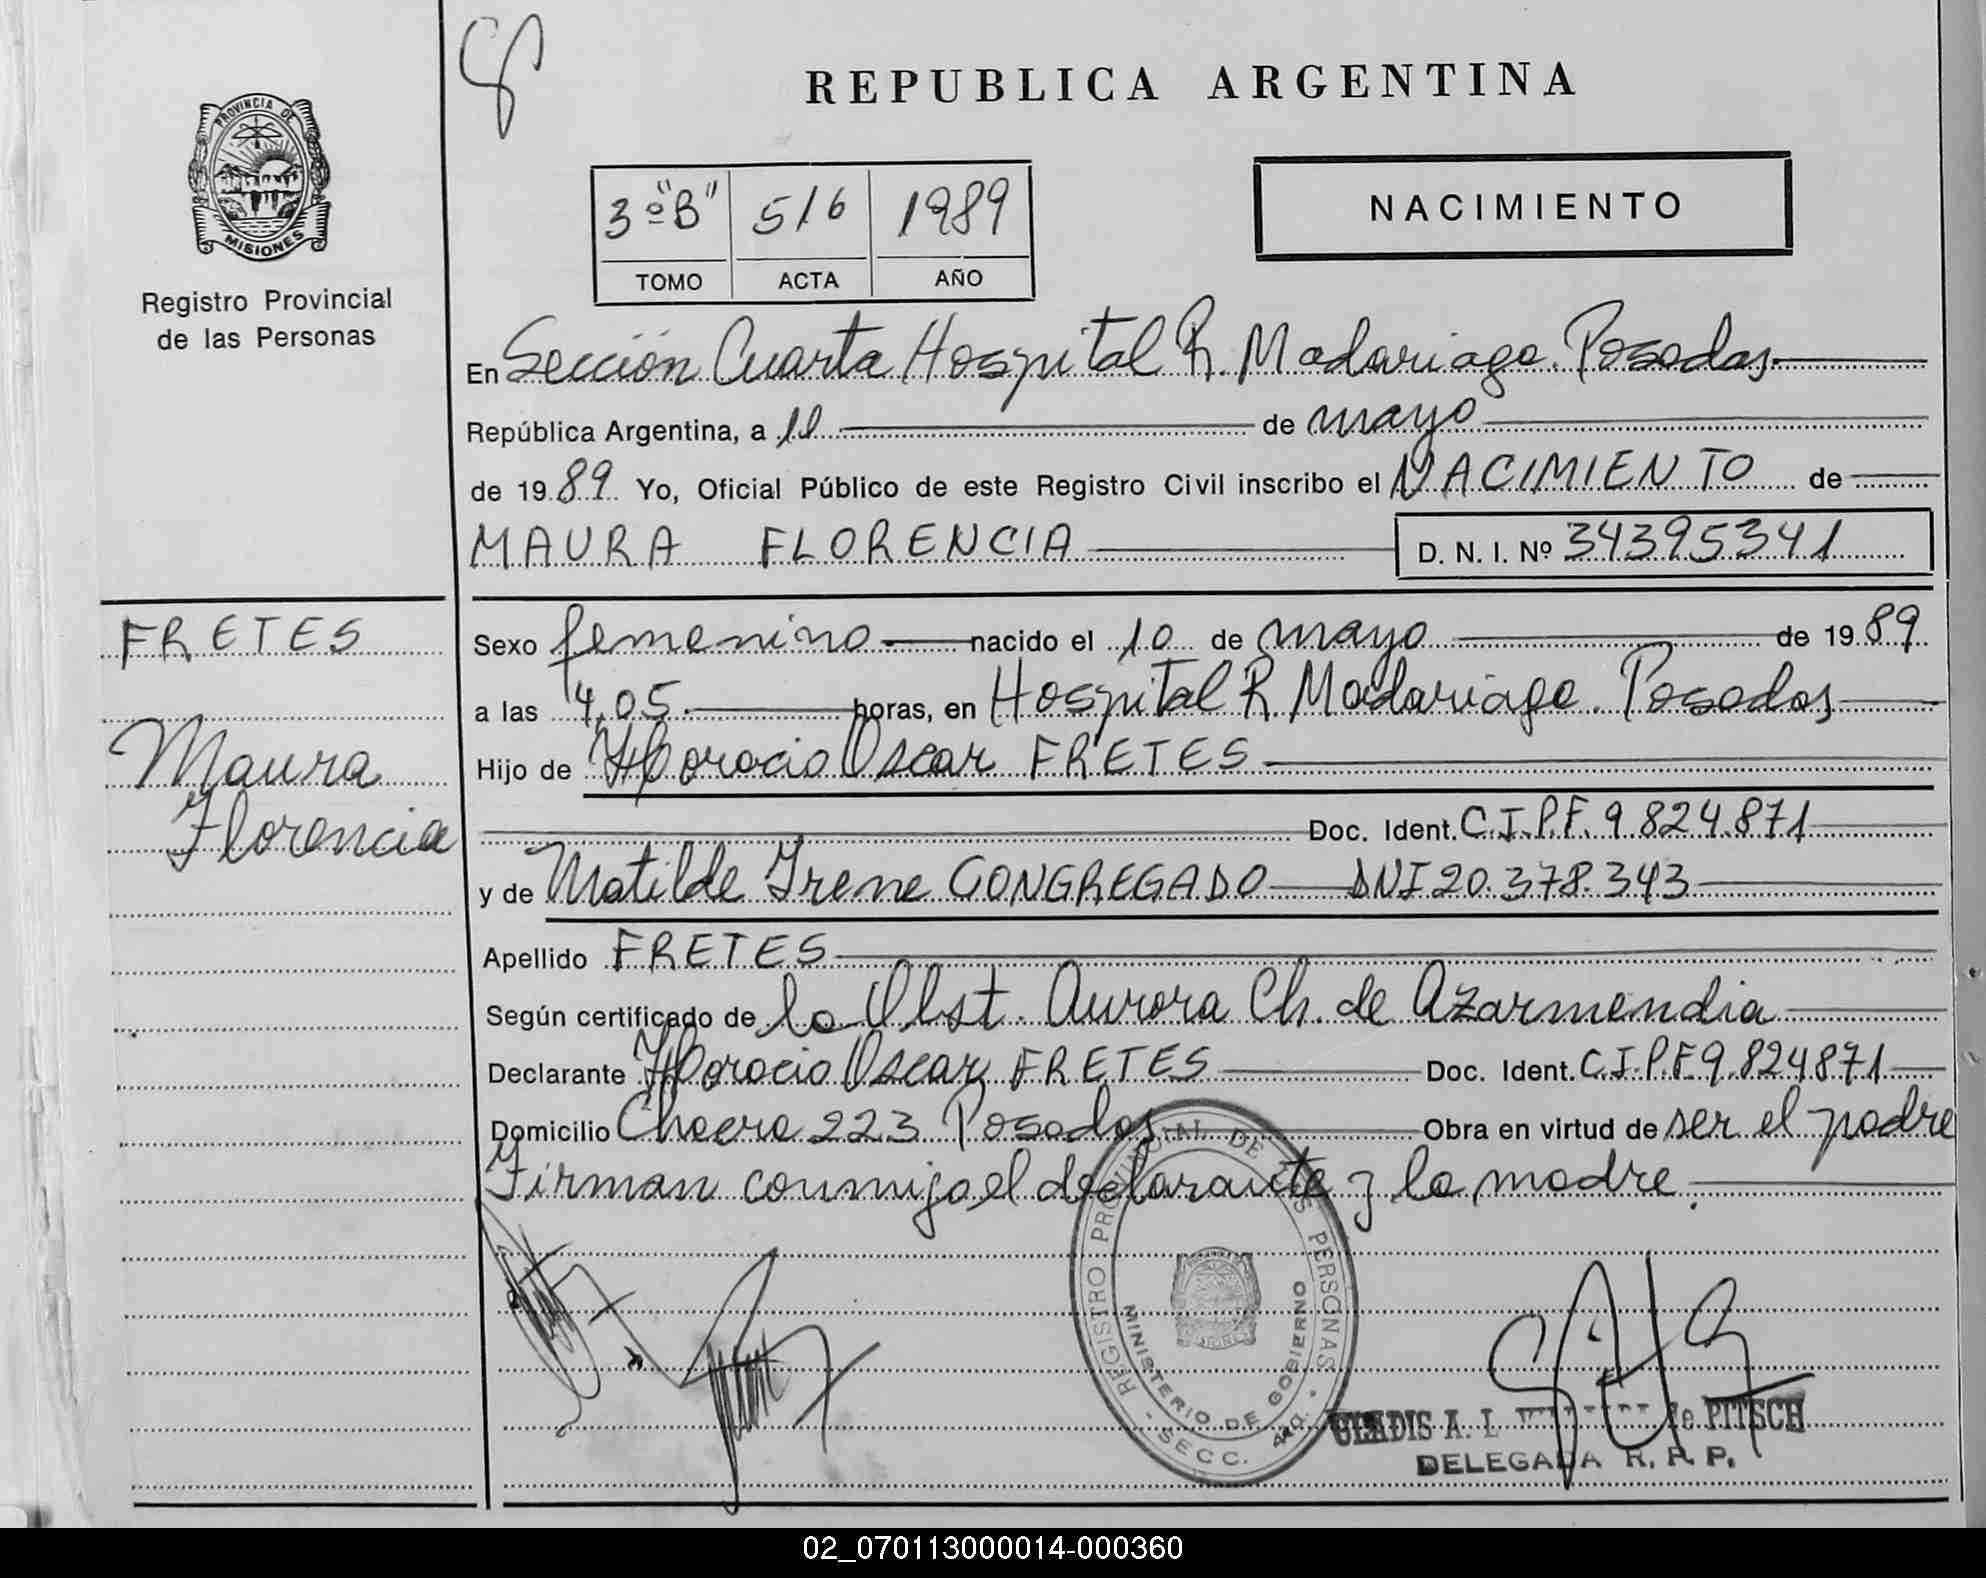 REPUBLICA ARGENTINA
PROVINCIA DE MISIONES
Registro Provincial
de las Personas
3º "B" 516 1989
TOMO ACTA AÑO
NACIMIENTO
En Sección Cuarta Hospital R. Madariaga. Posadas
República Argentina, a 11 de mayo
de 1989 Yo, Oficial Público de este Registro Civil inscribo el NACIMIENTO de
MAURA FLORENCIA D. N. I. Nº 34395341
FRETES
Maura
Florencia
Sexo femenino nacido el 10 de mayo de 1989
a las 4,05 horas, en Hospital R. Madariaga. Posadas
Hijo de Horacio Oscar FRETES
Doc. Ident. C.I.P.F. 9.824.871
y de Matilde Irene CONGREGADO DNI 20.378.343
Apellido FRETES
Según certificado de la Obst. Aurora Ch. de Azarmendia
Declarante Horacio Oscar FRETES Doc. Ident. C.I.P.F 9.824871
Domicilio 223 Posadas Obra en virtud de ser el padre
Firman conmigo el declarante y la madre.
REGISTRO PROVINCIAL DE LAS PERSONAS
MINISTERIO DE GOBIERNO
SECC. 4ta.
GLADIS A. de PITSCH
DELEGADA R. P. P.
02_070113000014-000360